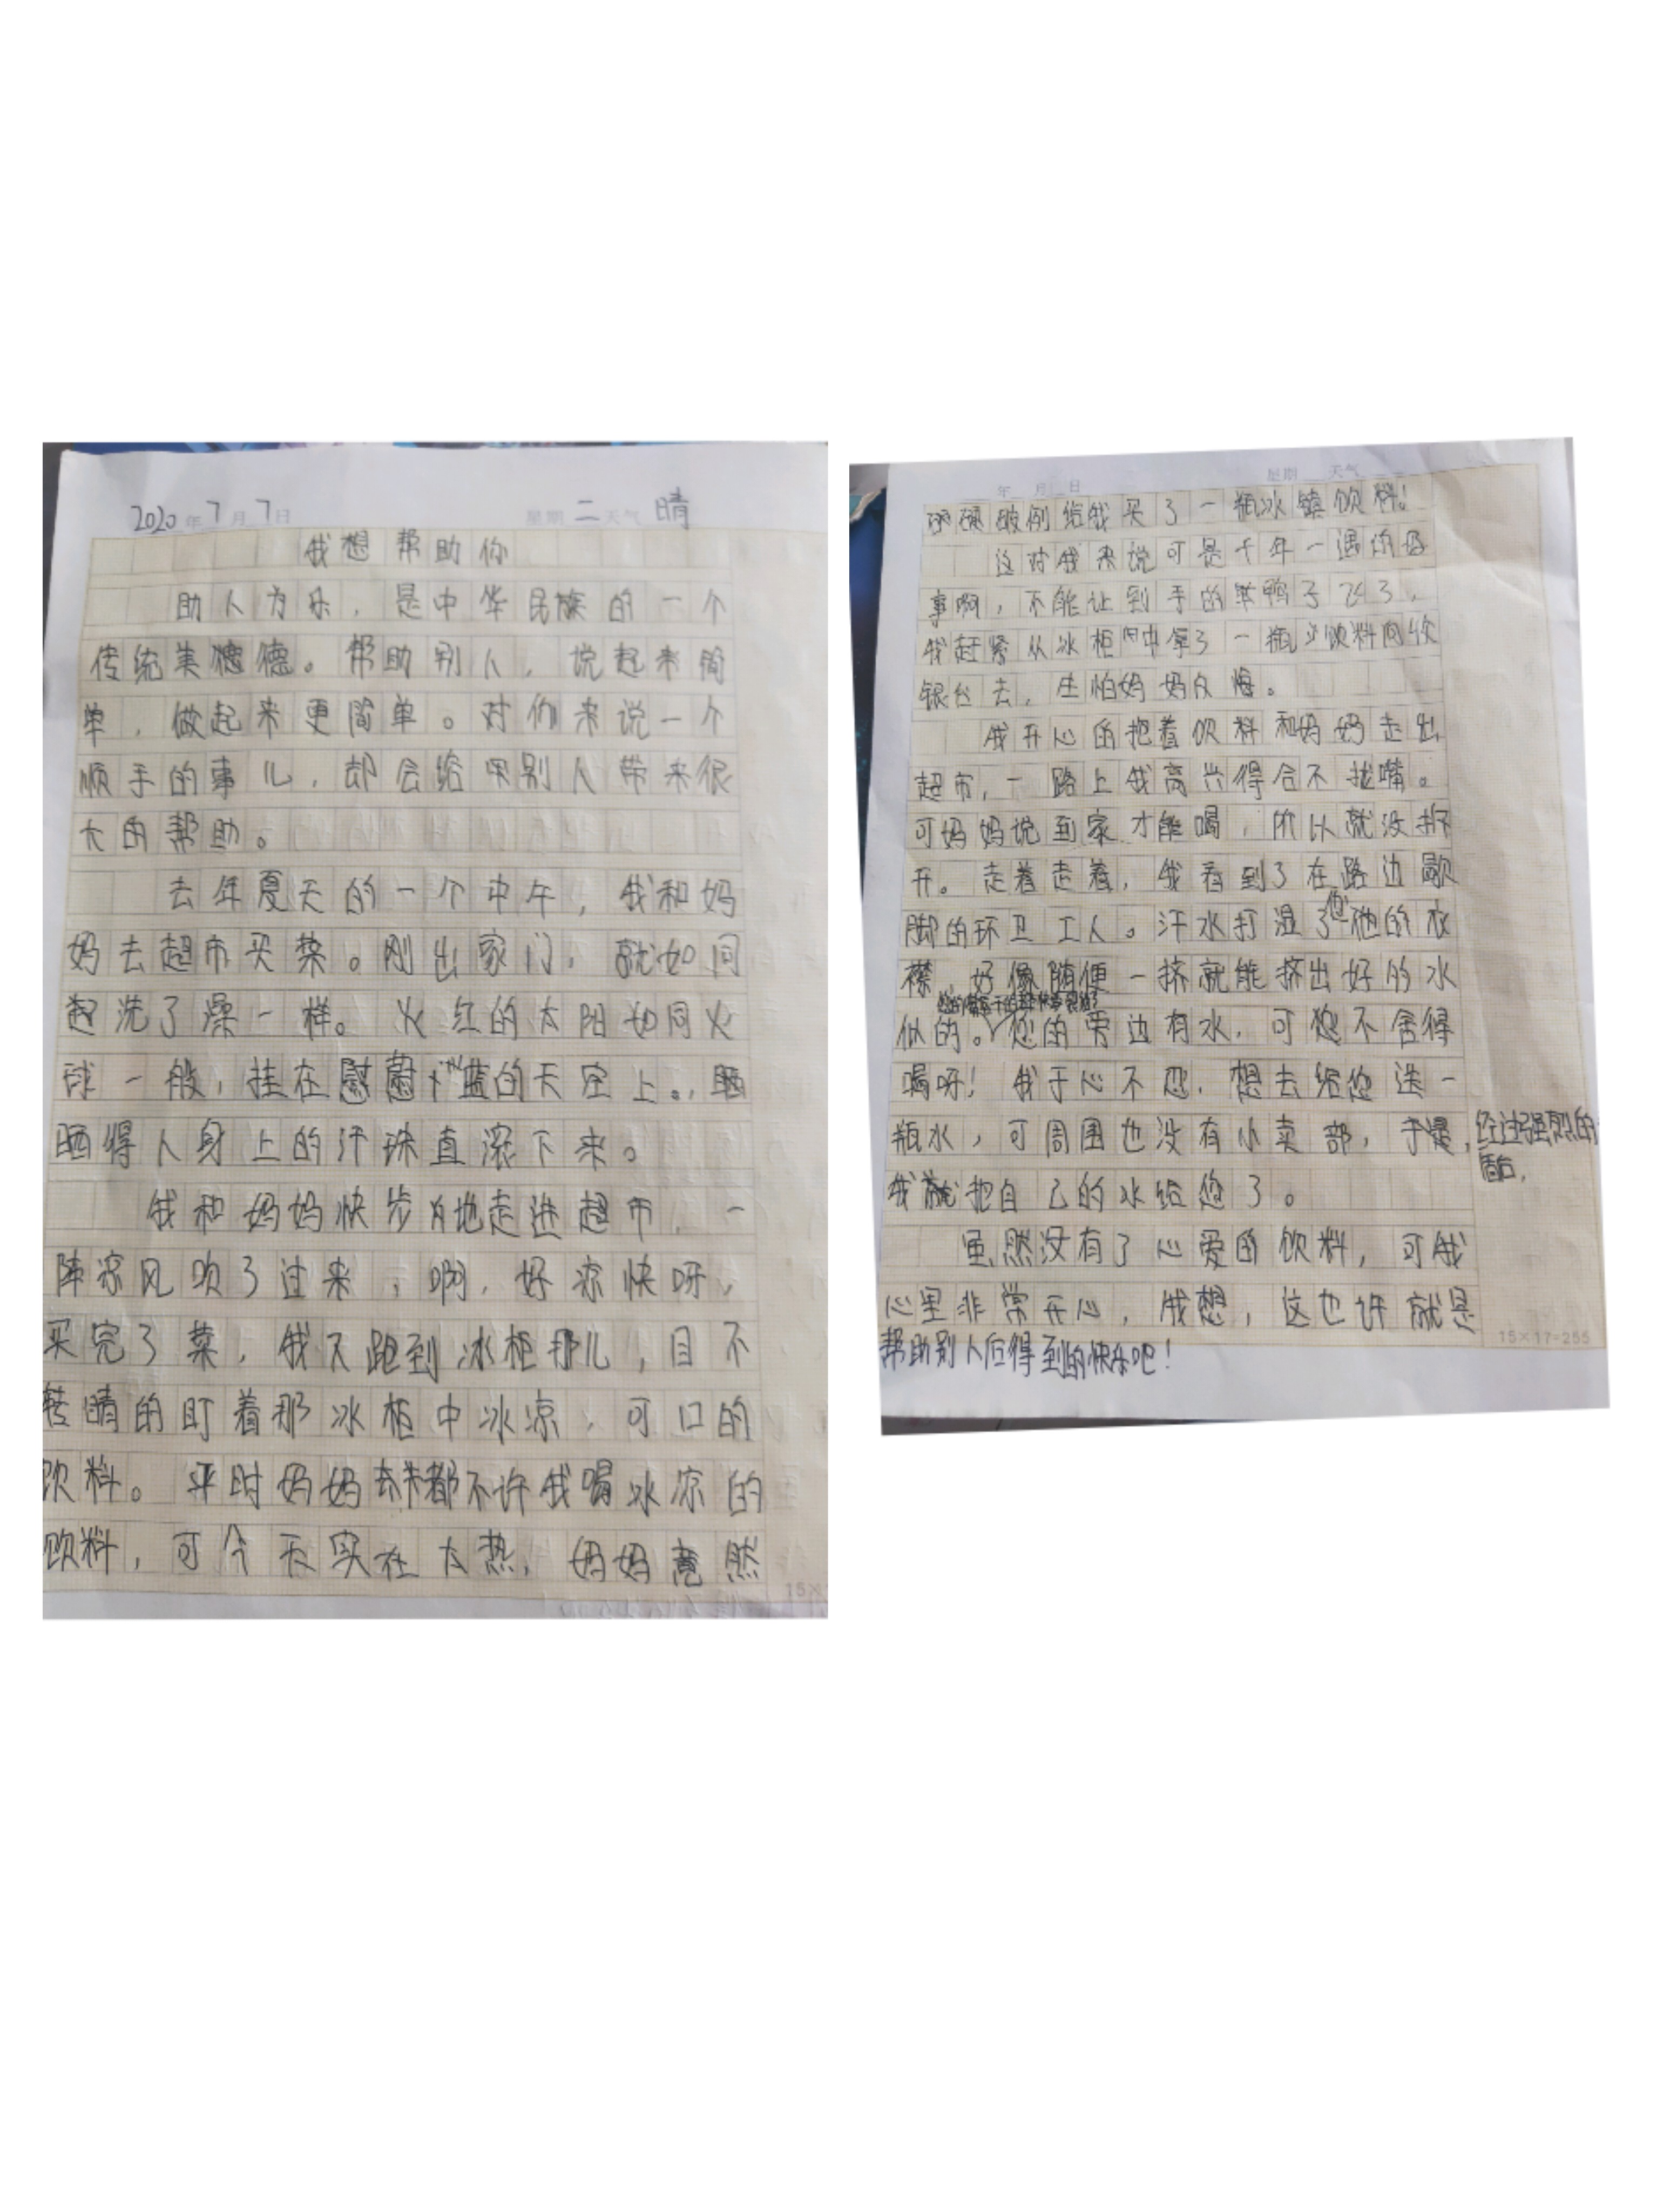 2020年7月7日 星期二 天气 晴
我想帮助你
助人为乐，是中华民族的一个
传统美德德。帮助别人，说起来简
单，做起来更简单。对你来说一个
顺手的事儿，却会给别人带来很
大的帮助。
去年夏天的一个中午，我和妈
妈去超市买菜。刚出家门，就如同
起洗了澡一样。火红的太阳如同火
球一般，挂在蓝的天空上。，晒
晒得人身上的汗珠直滚下来。
我和妈妈快步地走进超市，一
阵凉风吹了过来，啊，好凉快呀，
买完了菜，我又跑到冰柜那儿，目不
转睛的盯着那冰柜中冰凉，可口的
饮料。平时妈妈都不许我喝冰凉的
饮料，可今天实在太热，妈妈竟然
年 月 日 星期 天气
破例给我买了一瓶冰镇饮料！
这对我来说可是千年一遇的好
事啊，不能让到手的鸭子飞了，
我赶紧从冰柜中拿了一瓶饮料向收
银台去，生怕妈妈反悔。
我开心的抱着饮料和妈妈走出
超市，一路上我高兴得合不拢嘴。
可妈妈说到家才能喝，所以就没拆
开。走着走着，我看到了在路边歇
脚的环卫工人。汗水打湿了您他的衣
襟，好像随便一挤就能挤出好的水
似的。您的旁边有水，可您不舍得
喝呀！我于心不忍，想去给您送一
瓶水，可周围也没有小卖部，于是，经过强烈的
我就把自己的水给您了。
虽然没有了心爱的饮料，可我
心里非常开心，我想，这也许就是
15×17=255
帮助别人后得到的快乐吧！